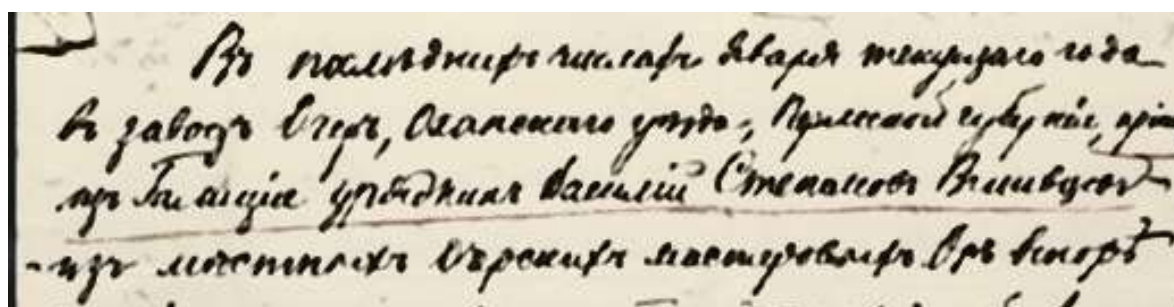 Въ послѣднихъ числахъ января текущаго года
въ заводъ Очеръ, Оханскаго уѣзда, Пермской губерніи, прі
изъ Галиціи урядникъ Василій Степановъ
изъ мѣстныхъ Очерскихъ мастеровыхъ Онъ вскорѣ